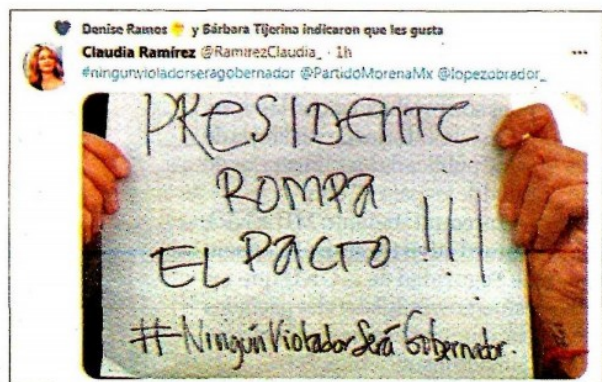 Denise Ramos y Bárbara Tijerina indicaron que les gusta
Claudia Ramírez @RamirezClaudia_ · 1h
#ningunvioladorseragobernador @PartidoMorenaMx @lopezobrador_
PRESIDENTE
ROMPA
EL PACTO!!!
#NingúnVioladorSeráGobernador.